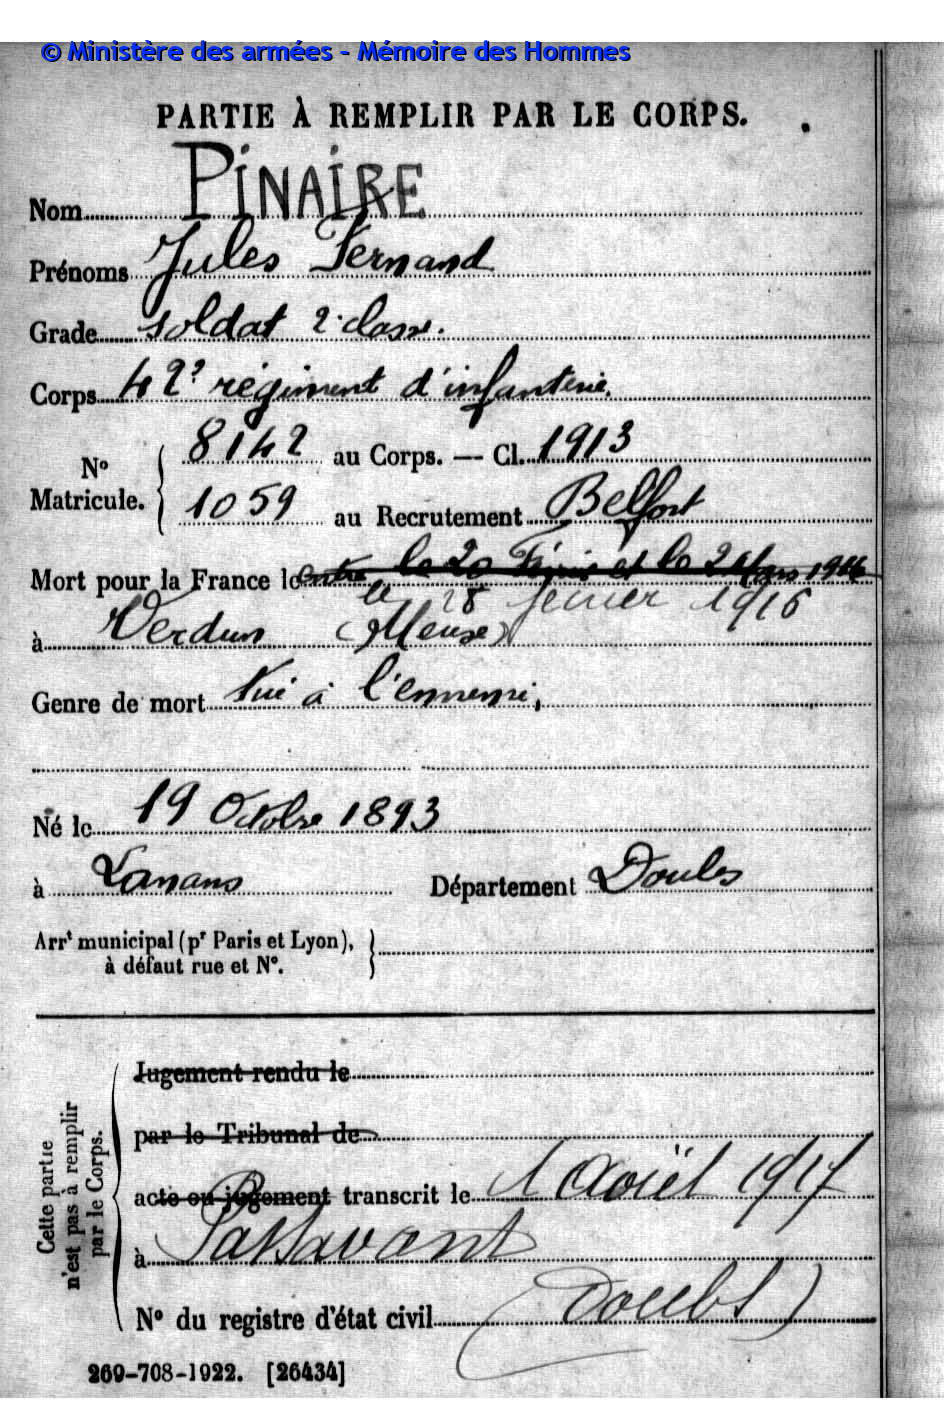 © Ministère des armées - Mémoire des Hommes
PARTIE À REMPLIR PAR LE CORPS.
Nom PINAIRE
Prénoms Jules Fernand
Grade soldat 2e classe.
Corps 42e régiment d'infanterie.
N° Matricule. { 8142 au Corps. — Cl. 1913
1059 au Recrutement Belfort
Mort pour la France le entre le 20 Février et le 2 Mars 1916
le 28 février 1916
à Verdun (Meuse)
Genre de mort Tué à l'ennemi.
Né le 19 Octobre 1893
à Lanans Département Doubs
Arrt municipal (pr Paris et Lyon), }
à défaut rue et N°.
Cette partie n'est pas à remplir par le Corps.
Jugement rendu le
par le Tribunal de
acte ou jugement transcrit le 1 Août 1917
à Passavant
N° du registre d'état civil (Doubs)
269-708-1922. [26434]